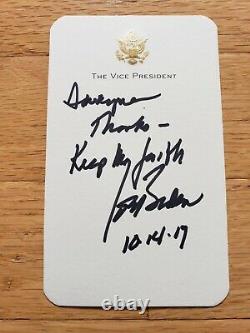 THE VICE PRESIDENT
Thanks -
Keep the faith
Joe Biden
10-14-17
ebay